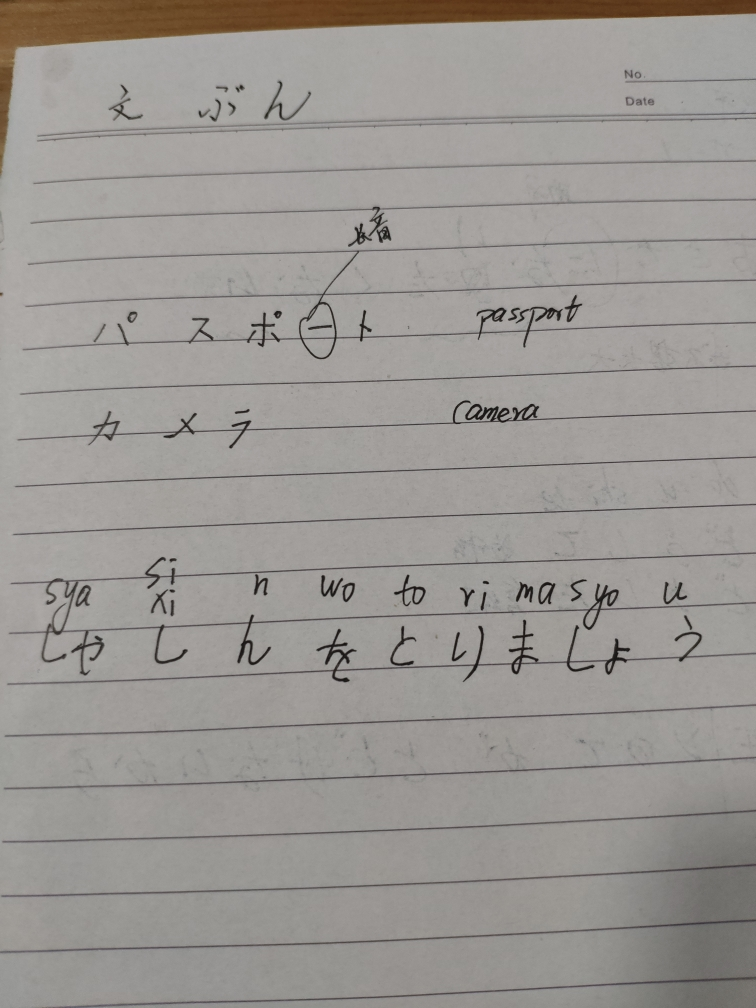 No.
Date
文 ぶん
长音
パスポート passport
カメラ Camera
si
sya xi n wo to ri ma syo u
しゃしんをとりましょう